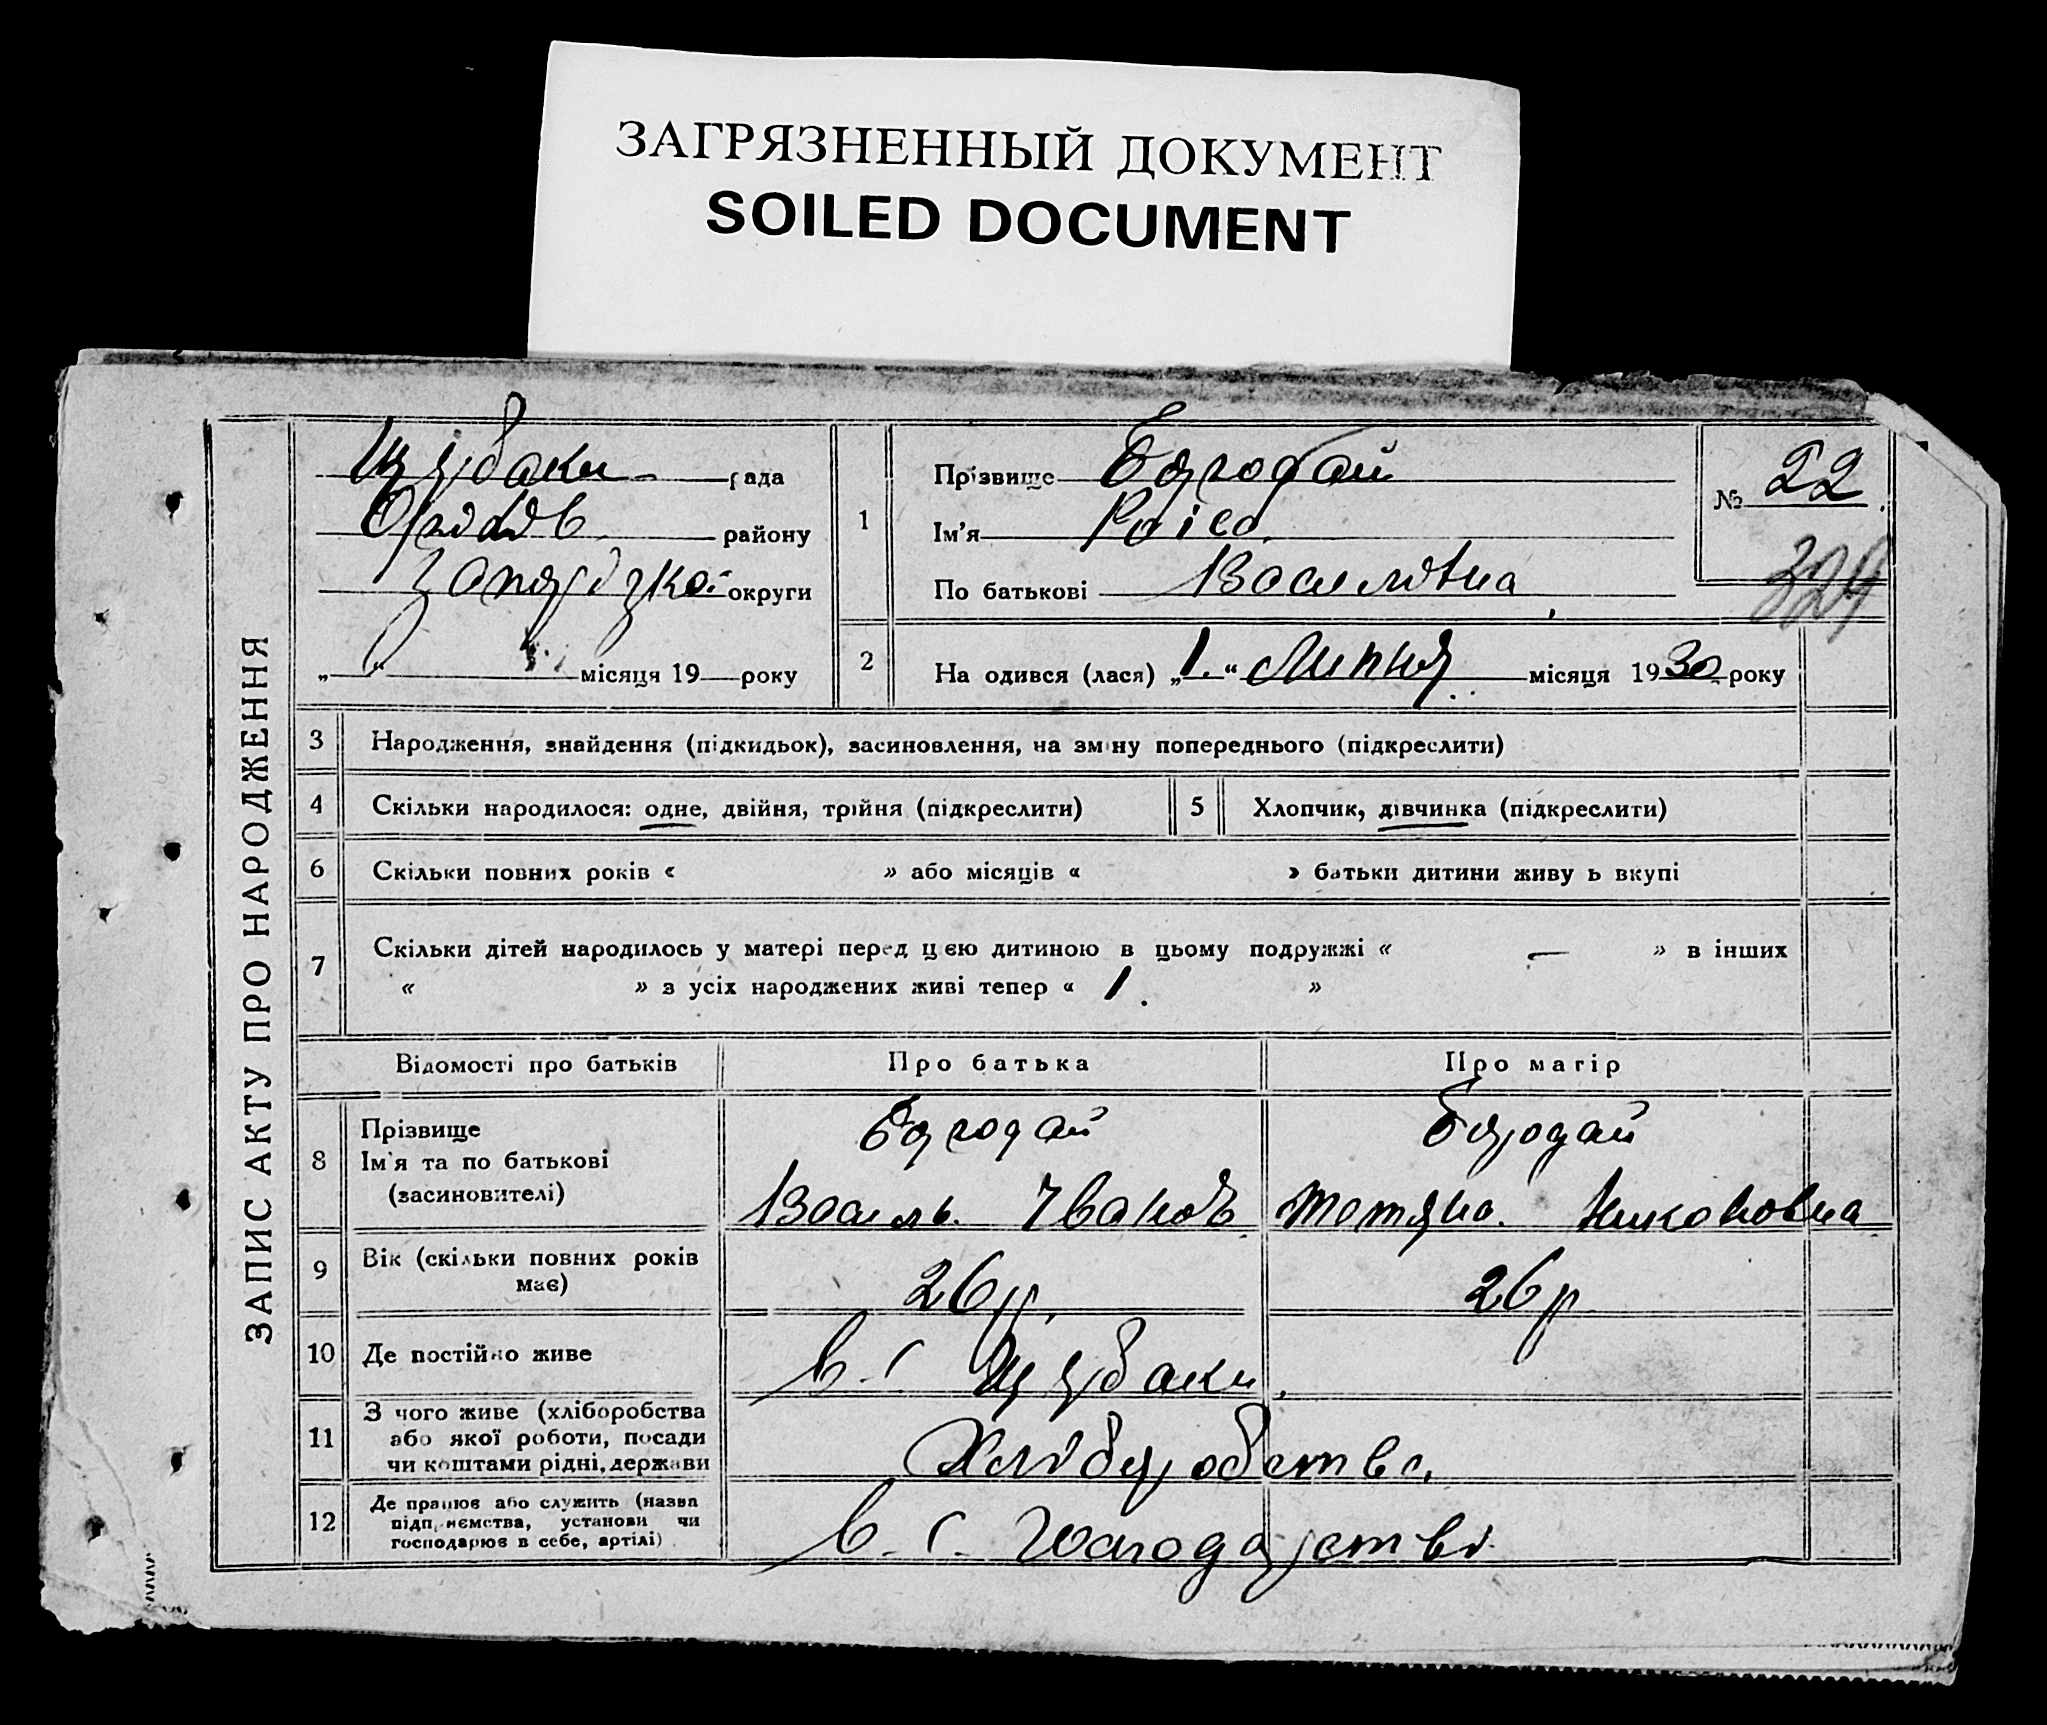 ЗАГРЯЗНЕННЫЙ ДОКУМЕНТ
SOILED DOCUMENT
ЗАПИС АКТУ ПРО НАРОДЖЕННЯ
Щербаки рада
Оріхів району
округи
„ “ місяця 19 року
1
Прізвище
Ім'я Раіса
По батькові Василівна
№ 22
324
2
На одився (лася) „1.“ Липня місяця 1930 року
3 Народження, знайдення (підкидьок), засиновлення, на зміну попереднього (підкреслити)
4 Скільки народилося: одне, двійня, трійня (підкреслити) 5 Хлопчик, дівчинка (підкреслити)
6 Скільки повних років « » або місяців « » батьки дитини живу ь вкупі
7 Скільки дітей народилось у матері перед цією дитиною в цьому подружжі « — » в інших
« » з усіх народжених живі тепер « 1. »
Відомості про батьків Про батька Про матір
8 Прізвище
Ім'я та по батькові
(засиновителі)
Василь Іванов Тетяна Никоновна
9 Вік (скільки повних років
має) 26 р. 26 р
10 Де постійно живе в. с. Щербаки.
11 З чого живе (хліборобства
або якої роботи, посади
чи коштами рідні, держави
Хліборобство.
12 Де працює або служить (назва
підприємства, установи чи
господарює в себе, артілі)
в. с.